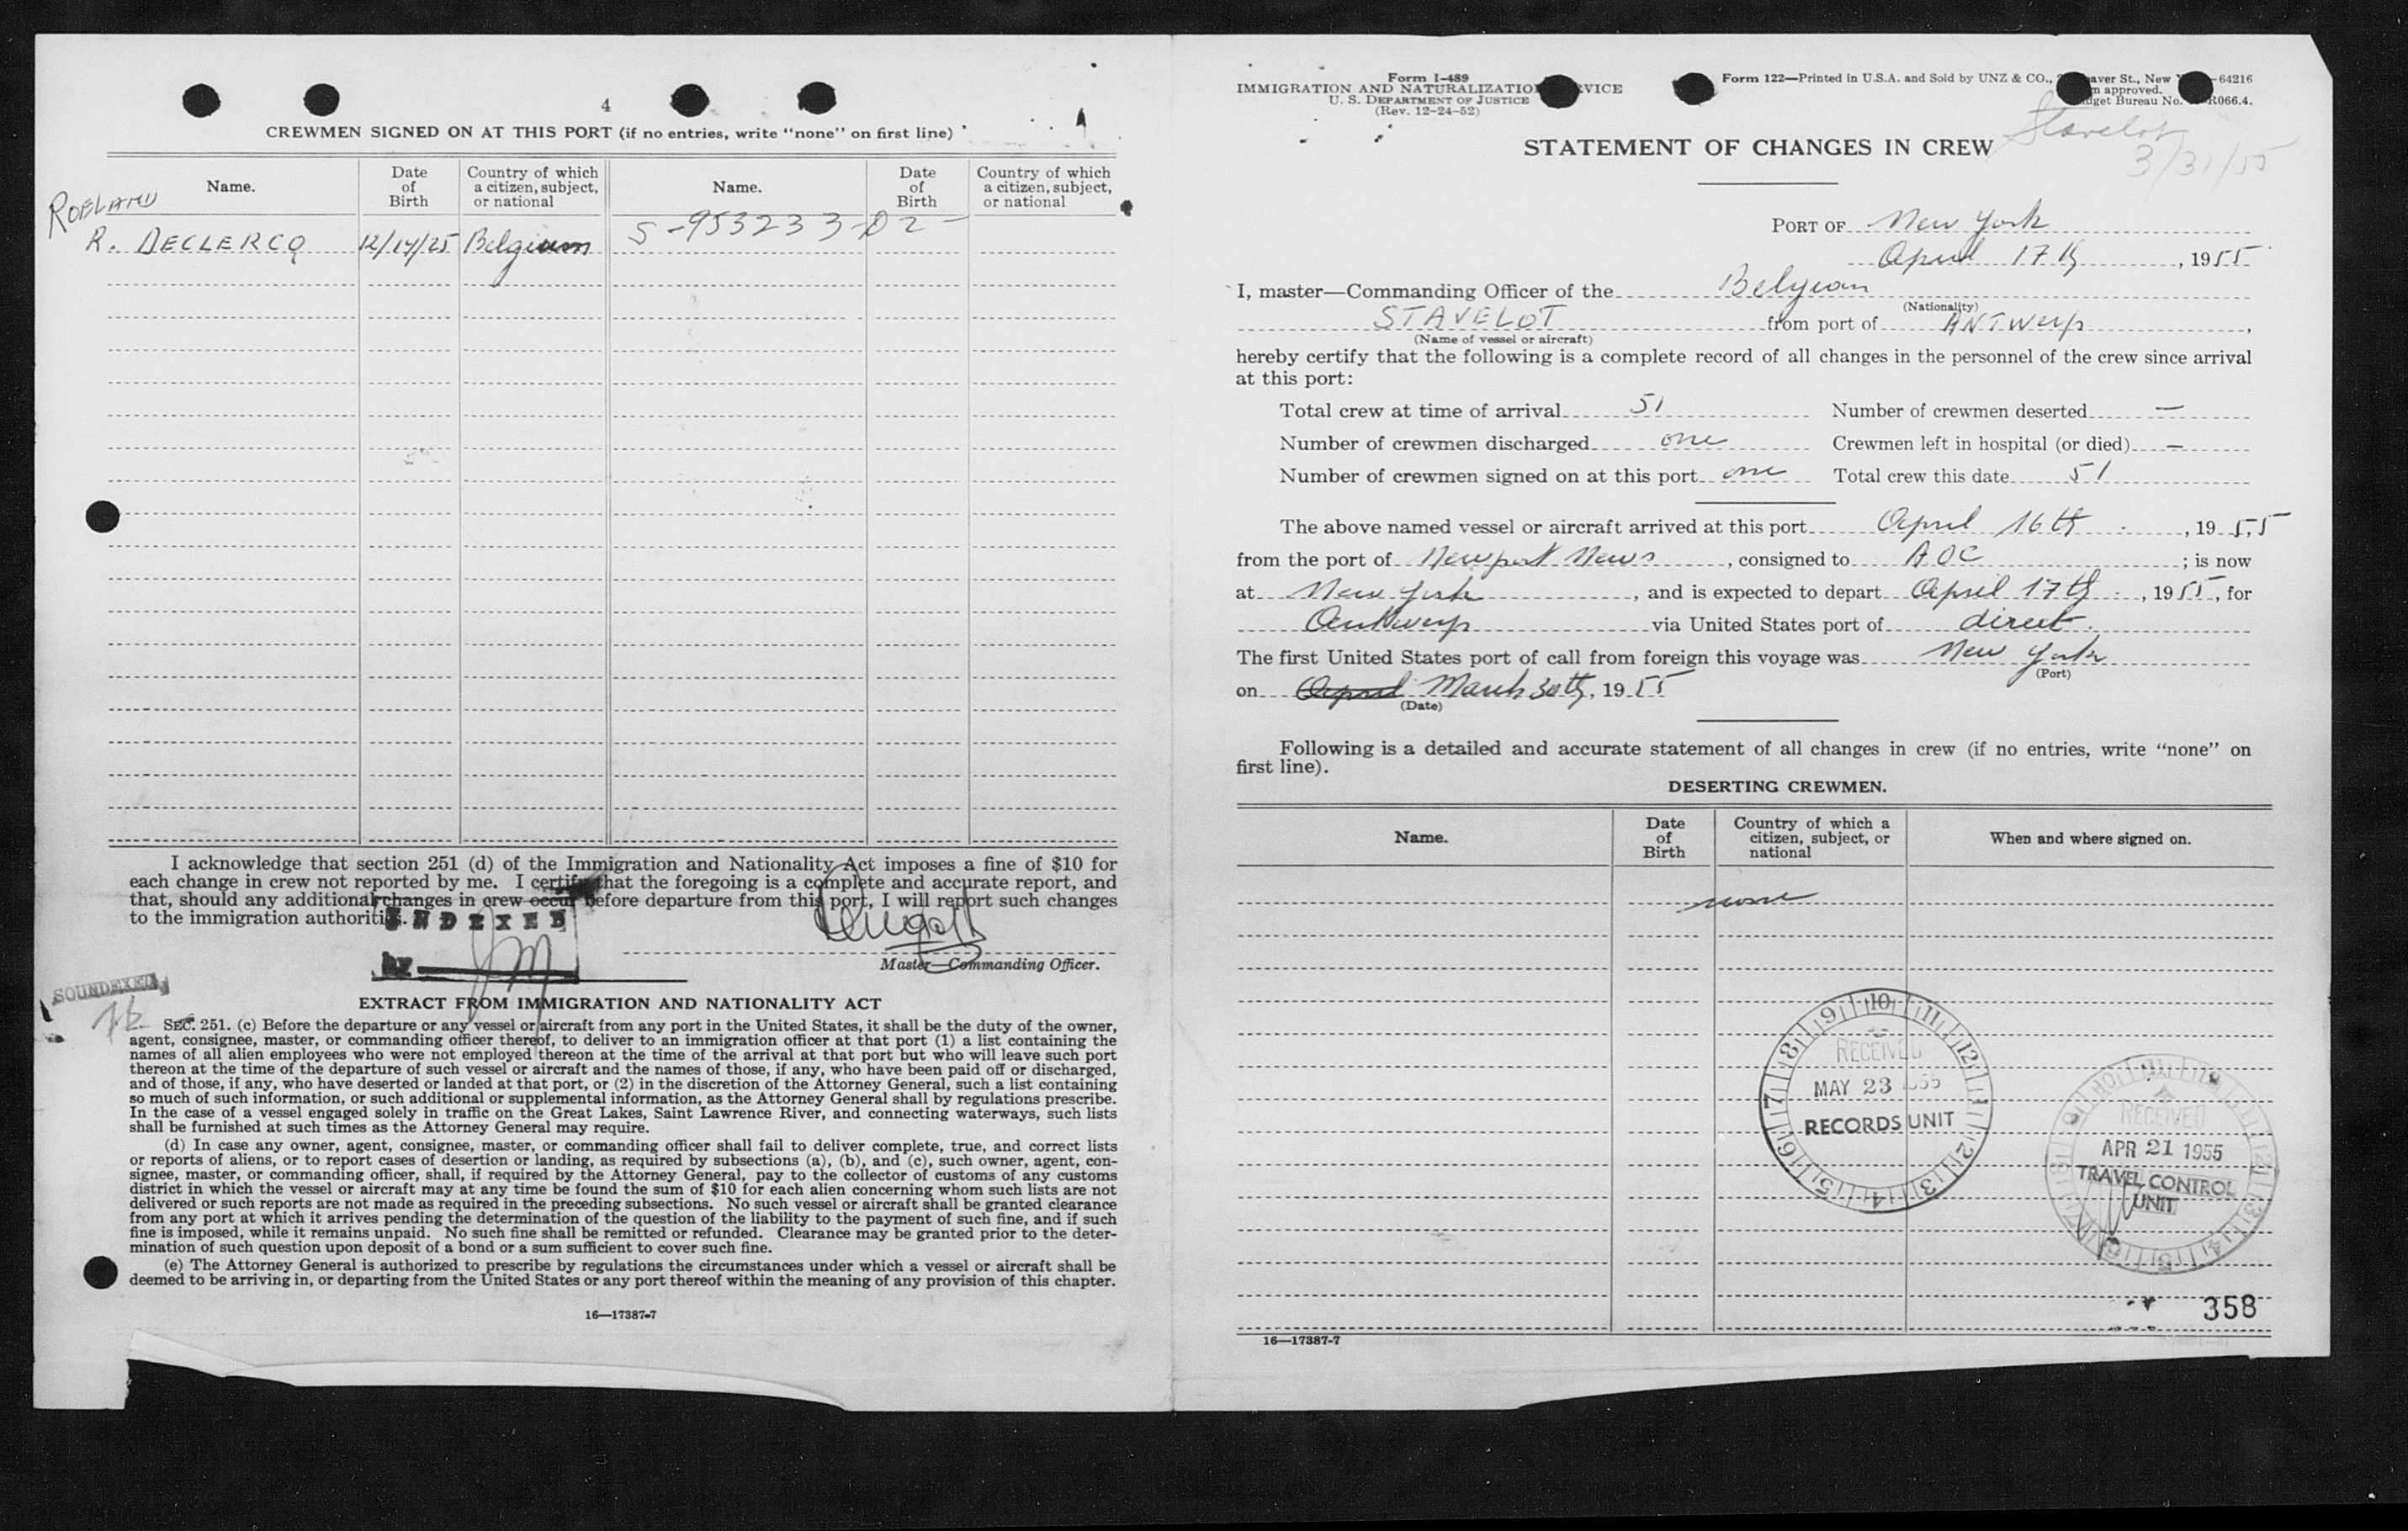 4
CREWMEN SIGNED ON AT THIS PORT (if no entries, write "none" on first line)
Name. Date of Birth Country of which a citizen, subject, or national Name. Date of Birth Country of which a citizen, subject, or national
ROELAND
R. DECLERCQ 12/14/25 Belgium S-953233-D2-
I acknowledge that section 251 (d) of the Immigration and Nationality Act imposes a fine of $10 for
each change in crew not reported by me. I certify that the foregoing is a complete and accurate report, and
that, should any additional changes in crew occur before departure from this port, I will report such changes
to the immigration authorities.
INDEXED
by JM
Master—Commanding Officer.
SOUNDEXED
EXTRACT FROM IMMIGRATION AND NATIONALITY ACT
SEC. 251. (c) Before the departure or any vessel or aircraft from any port in the United States, it shall be the duty of the owner,
agent, consignee, master, or commanding officer thereof, to deliver to an immigration officer at that port (1) a list containing the
names of all alien employees who were not employed thereon at the time of the arrival at that port but who will leave such port
thereon at the time of the departure of such vessel or aircraft and the names of those, if any, who have been paid off or discharged,
and of those, if any, who have deserted or landed at that port, or (2) in the discretion of the Attorney General, such a list containing
so much of such information, or such additional or supplemental information, as the Attorney General shall by regulations prescribe.
In the case of a vessel engaged solely in traffic on the Great Lakes, Saint Lawrence River, and connecting waterways, such lists
shall be furnished at such times as the Attorney General may require.
(d) In case any owner, agent, consignee, master, or commanding officer shall fail to deliver complete, true, and correct lists
or reports of aliens, or to report cases of desertion or landing, as required by subsections (a), (b), and (c), such owner, agent, con-
signee, master, or commanding officer, shall, if required by the Attorney General, pay to the collector of customs of any customs
district in which the vessel or aircraft may at any time be found the sum of $10 for each alien concerning whom such lists are not
delivered or such reports are not made as required in the preceding subsections. No such vessel or aircraft shall be granted clearance
from any port at which it arrives pending the determination of the question of the liability to the payment of such fine, and if such
fine is imposed, while it remains unpaid. No such fine shall be remitted or refunded. Clearance may be granted prior to the deter-
mination of such question upon deposit of a bond or a sum sufficient to cover such fine.
(e) The Attorney General is authorized to prescribe by regulations the circumstances under which a vessel or aircraft shall be
deemed to be arriving in, or departing from the United States or any port thereof within the meaning of any provision of this chapter.
16—17387-7
Form I-489
IMMIGRATION AND NATURALIZATION SERVICE
U. S. DEPARTMENT OF JUSTICE
(Rev. 12-24-52)
Form 122—Printed in U.S.A. and Sold by UNZ & CO., aver St., New -64216
approved.
get Bureau No. R066.4.
Stavelot
3/31/55
STATEMENT OF CHANGES IN CREW
PORT OF New York
April 17th, 1955
I, master—Commanding Officer of the Belgian
(Nationality)
STAVELOT from port of ANTWerp,
(Name of vessel or aircraft)
hereby certify that the following is a complete record of all changes in the personnel of the crew since arrival
at this port:
Total crew at time of arrival 51 Number of crewmen deserted —
Number of crewmen discharged one Crewmen left in hospital (or died) —
Number of crewmen signed on at this port one Total crew this date 51
The above named vessel or aircraft arrived at this port April 16th, 1955
from the port of Newport News, consigned to AOC; is now
at New York, and is expected to depart April 17th, 1955, for
Antwerp via United States port of direct.
The first United States port of call from foreign this voyage was New York
(Port)
on April March 30th, 1955
(Date)
Following is a detailed and accurate statement of all changes in crew (if no entries, write "none" on
first line).
DESERTING CREWMEN.
Name. Date of Birth Country of which a citizen, subject, or national When and where signed on.
none
RECEIVED
MAY 23 1955
RECORDS UNIT
RECEIVED
APR 21 1955
TRAVEL CONTROL
UNIT
358
16—17387-7